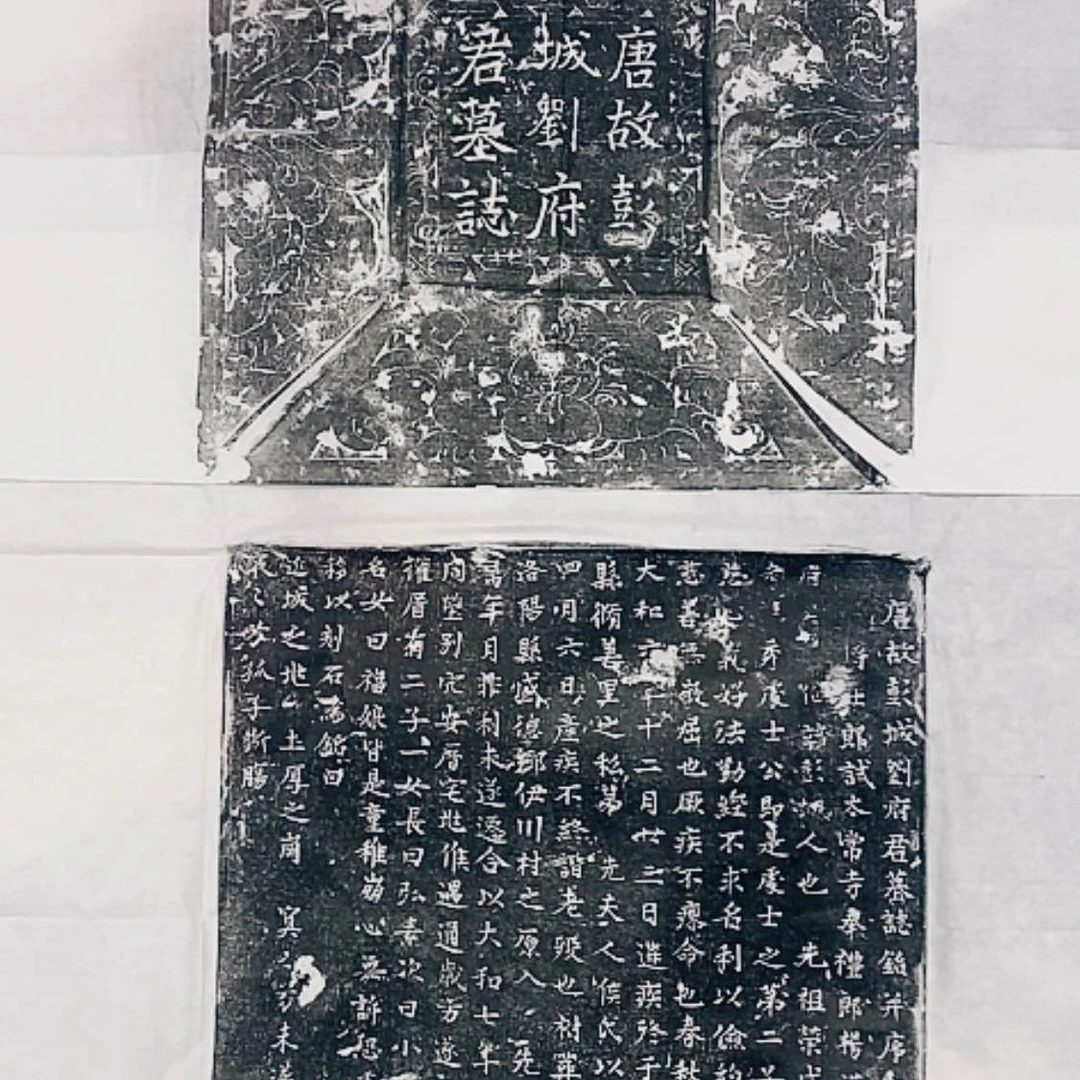 唐故彭
城劉府
君墓誌
唐故彭城劉府君墓誌銘并序
將仕郎試太常寺奉禮郎楊
府君 彭城人也 先祖榮
處士公即是處士之第二
好法勤經不求名利以儉
慈善無敢屈也厥疾不瘳命也春秋
大和六年十二月廿二日遘疾終于
縣脩善里之私第 先夫人侯氏以
四月六日產疾不終諧老歿也祔葬
洛陽縣感德鄉伊川村之原
年月非利未遂遷合以大和七年
向塋別 安厝宅地俻遇通歲方遂
權厝有二子一女長曰弘素次曰小
名女曰福娘皆是童稚崩心無訴恐
移以刻石為銘曰
近城之地 土厚之崗 冥 未
孤子斷腸